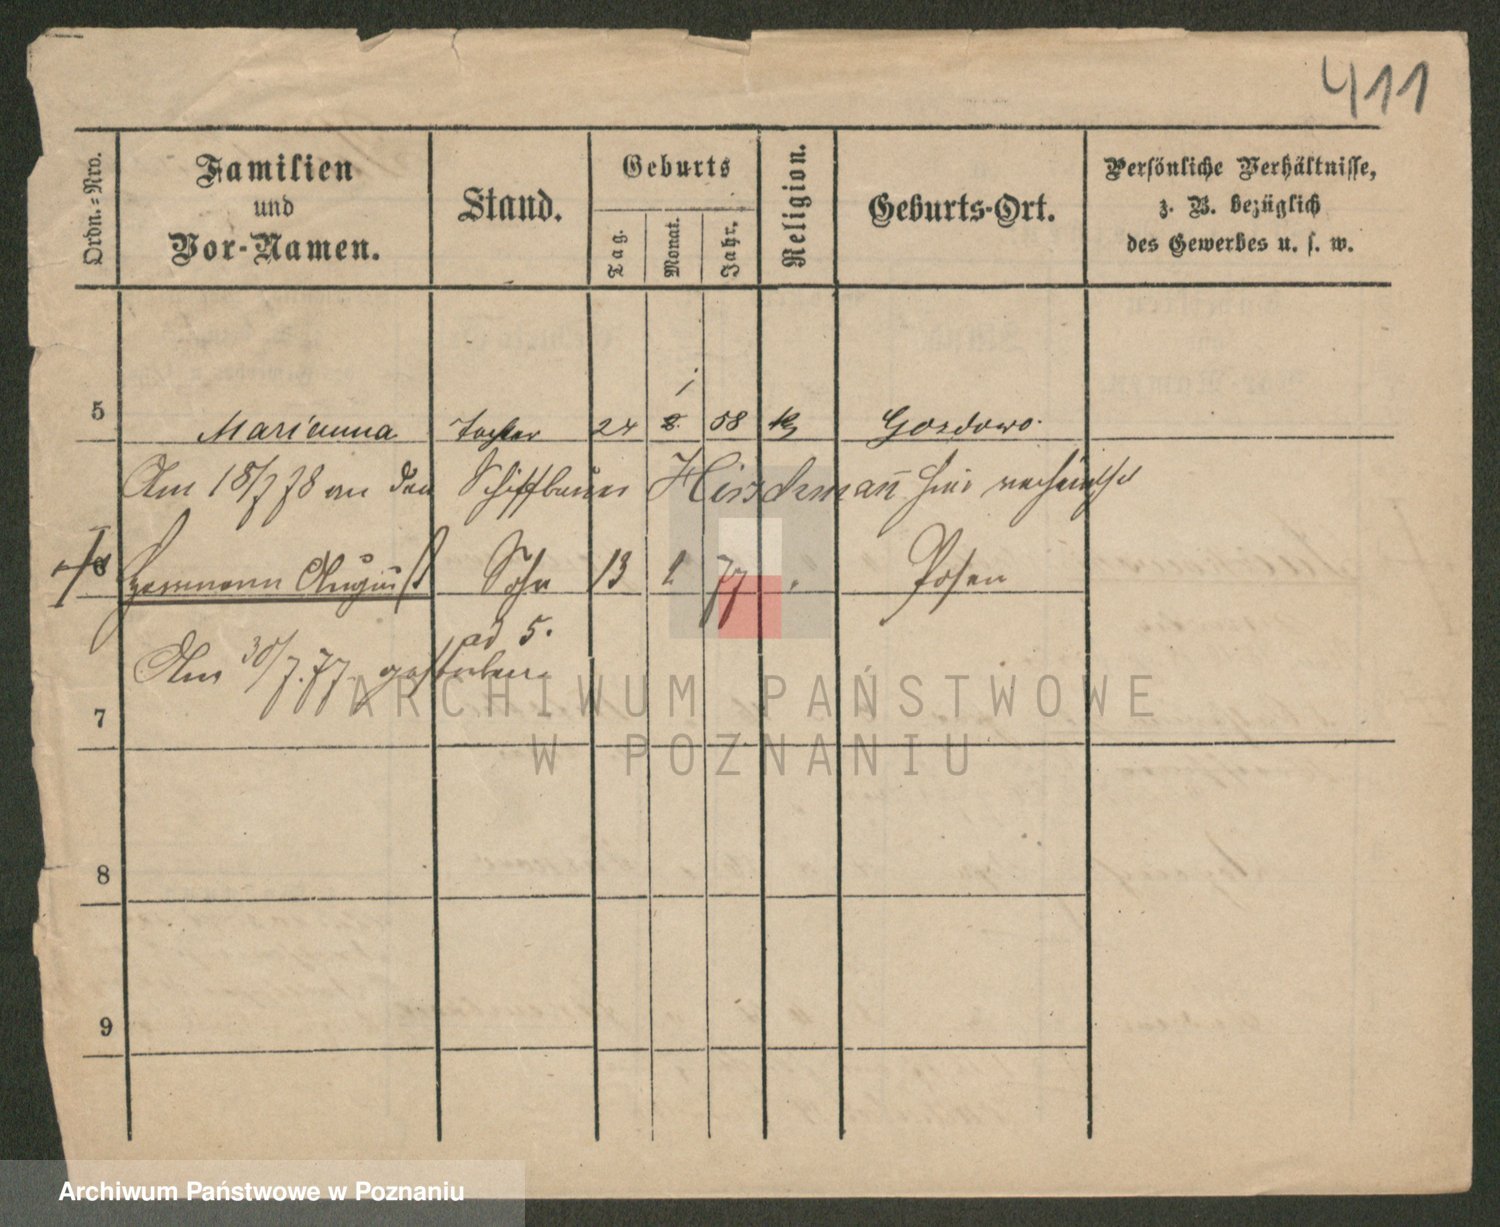 411
Ordn.-Nro.
Familien und Vor-Namen.
Stand.
Geburts
Tag. Monat. Jahr.
Religion.
Geburts-Ort.
Persönliche Verhältnisse, z. B. bezüglich des Gewerbes u. s. w.
5 Marianna Tochter 24 1 58 k Gordowo.
Am 18/7 78 an den Schiffbauer Hirschmann hier verheirathet
6 Hermann August Sohn 13 1 77 " Posen
ad 5.
Am 30/7.77. gestorben.
7
8
9
ARCHIWUM PAŃSTWOWE
W POZNANIU
Archiwum Państwowe w Poznaniu